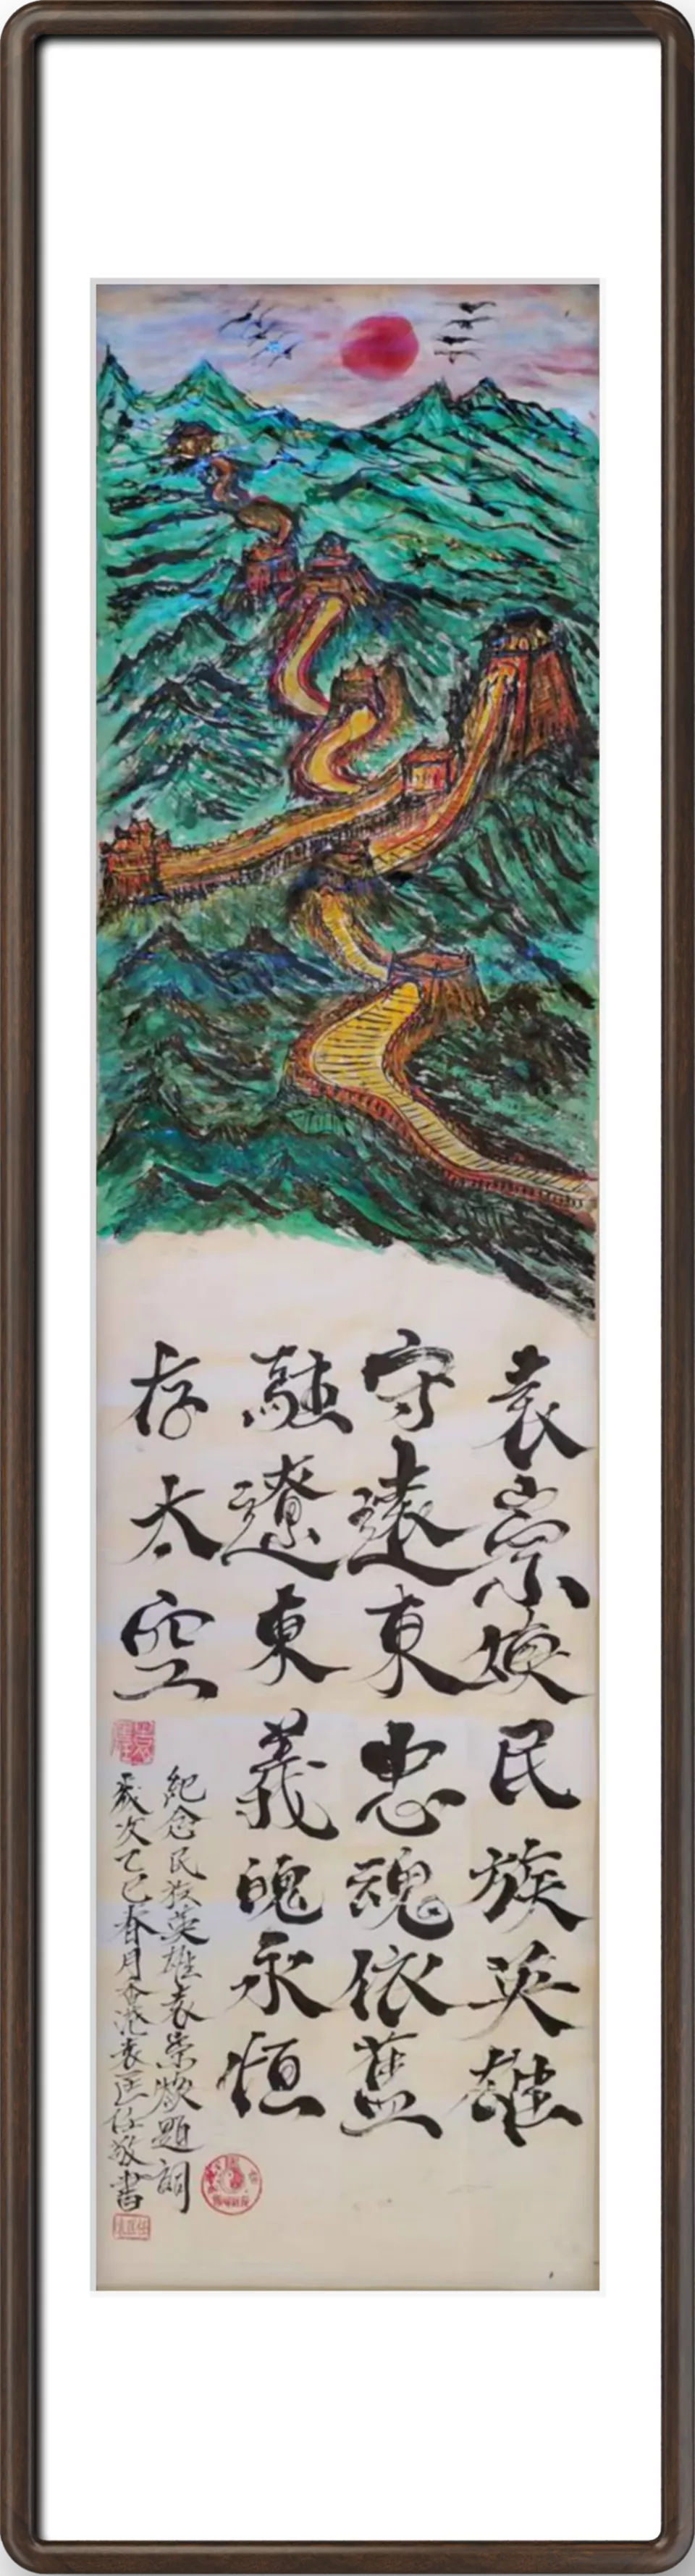 袁崇煥民族英雄
守遠東忠魂依舊
融遼東義魄永恒
存太空
紀念民族英雄袁崇煥題詞
歲次乙巳春月香港袁匡任敬書